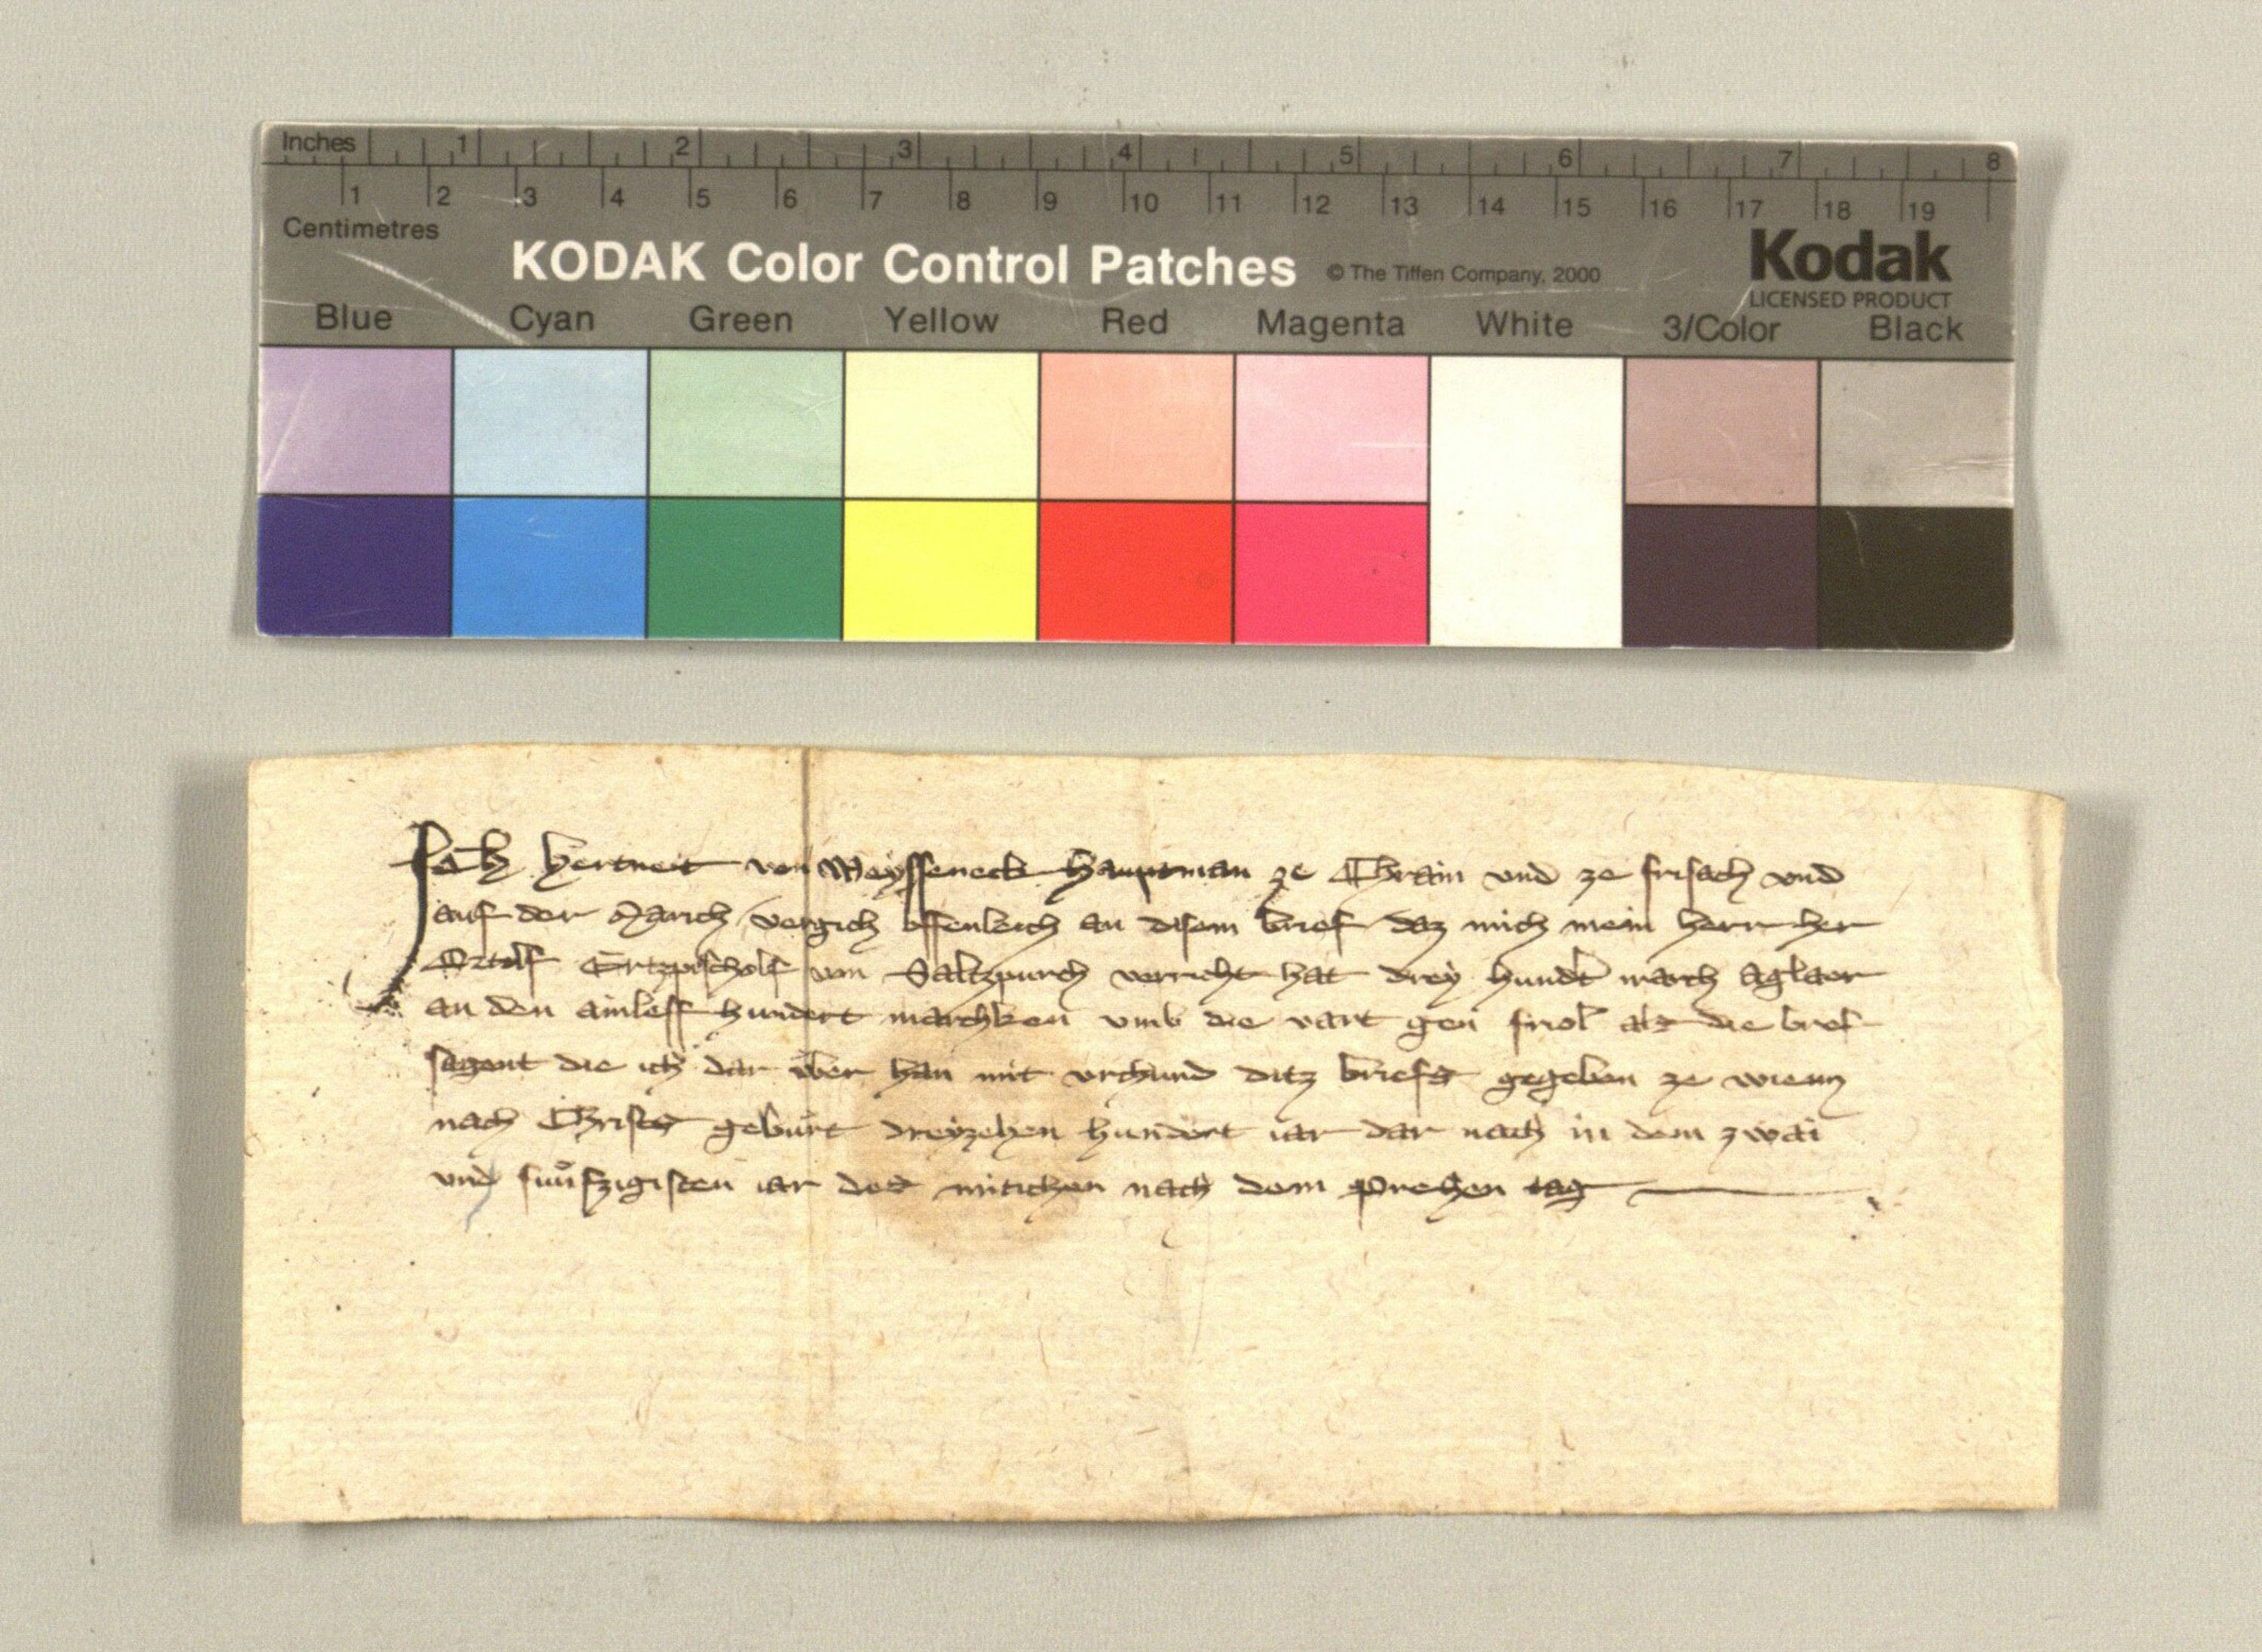 Inches 1 2 3 4 5 6 7 8
1 2 3 4 5 6 7 8 9 10 11 12 13 14 15 16 17 18 19
Centimetres
KODAK Color Control Patches © The Tiffen Company, 2000 Kodak
LICENSED PRODUCT
Blue Cyan Green Yellow Red Magenta White 3/Color Black
Ich hertneit von Weysseneck hauptman ze Chrain vnd ze frisach vnd
auf der March vergich offenleich an disem brief daz mich mein herr her
Ortolf Ertzpischolf von Saltzpurch verricht hat drey hundt march Aglaer
an den ainleff hundert marchken vmb die vart gen friol als die brief
sagent die ich dar vber han mit vrchund ditz briefs gegeben ze wienn
nach Christs geburt dreyzehen hundert iar dar nach in dem zwai
vnd fuͤnfzigisten iar des mitichen nach dem Prehen tag